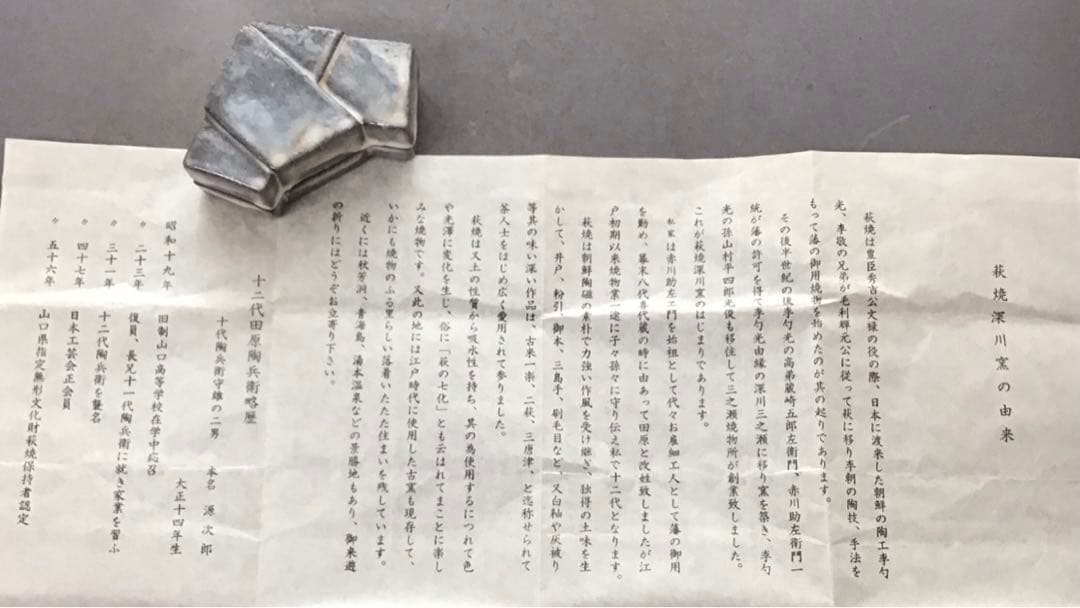 萩焼深川窯の由来
萩焼は豊臣秀吉公文禄の役の際、日本に渡来した朝鮮の陶工李勺
光、李敬の兄弟が毛利輝元公に従って萩に移り李朝の陶技、手法を
もって藩の御用焼物を始めたのが其の起りであります。
その後半世紀の後李勺光の高弟蔵崎五郎左衛門、赤川助左衛門一
統が藩の許可を得て李勺光由縁の深川三之瀬に移り窯を築き、李勺
光の孫山村平四郎光俊も移住して三之瀬焼物所が創業致しました。
これが萩焼深川窯のはじまりであります。
私家は赤川助左エ門を始祖として代々お雇細工人として藩の御用
を勤め、幕末八代喜代蔵の時に由あって田原と改姓致しましたが江
戸初期以来焼物業一途に子々孫々に守り伝え私で十二代となります。
萩焼は朝鮮陶磁の素朴で力強い作風を受け継ぎ、独得の土味を生
かして、井戸、粉引、御本、三島手、刷毛目など、又白釉や灰被り
等其の味い深い作品は、古来一楽、二萩、三唐津、と迄称せられて
茶人士をはじめ広く愛用されて参りました。
萩焼は又土の性質から吸水性を持ち、其の為使用するにつれて色
や光澤に変化を生じ、俗に「萩の七化」とも云はれてまことに楽し
みな焼物です。又此の地には江戸時代に使用した古窯も現存して、
いかにも焼物のふる里らしい落着いたた住まいを残しています。
近くには秋芳洞、青海島、湯本温泉などの景勝地もあり、御来遊
の折りにはどうぞお立寄り下さい。
十二代田原陶兵衛略歴
本名 源次郎
十代陶兵衛守雄の二男
大正十四年生
昭和十九年 旧制山口高等学校在学中応召
〃 二十三年 復員、長兄十一代陶兵衛に就き家業を習ふ
〃 三十一年 十二代陶兵衛を襲名
〃 四十七年 日本工芸会正会員
〃 五十六年 山口県指定無形文化財萩焼保持者認定